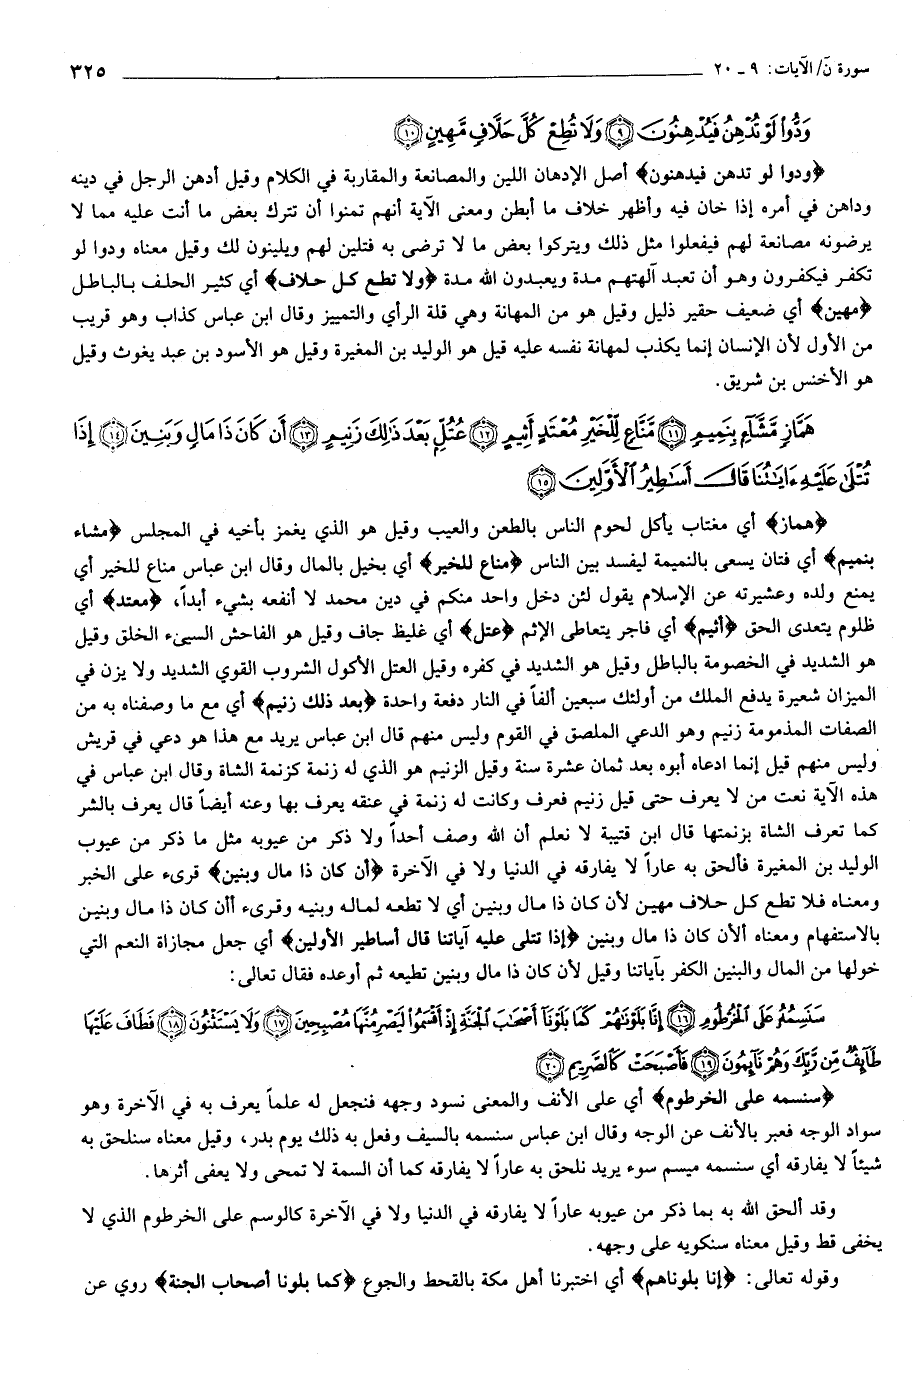 سورة نۤ/ الآيات: ٩ ـ ٢٠ ٣٢٥
وَدُّوا لَوْ تُدْهِنُ فَيُدْهِنُونَ ﴿٩﴾ وَلَا تُطِعْ كُلَّ حَلَّافٍ مَّهِينٍ ﴿١٠﴾
﴿ودوا لو تدهن فيدهنون﴾ أصل الإدهان اللين والمصانعة والمقاربة في الكلام وقيل أدهن الرجل في دينه
وداهن في أمره إذا خان فيه وأظهر خلاف ما أبطن ومعنى الآية أنهم تمنوا أن تترك بعض ما أنت عليه مما لا
يرضونه مصانعة لهم فيفعلوا مثل ذلك ويتركوا بعض ما لا ترضى به فتلين لهم ويلينون لك وقيل معناه ودوا لو
تكفر فيكفرون وهو أن تعبد آلهتهم مدة ويعبدون الله مدة ﴿ولا تطع كل حلاف﴾ أي كثير الحلف بالباطل
﴿مهين﴾ أي ضعيف حقير ذليل وقيل هو من المهانة وهي قلة الرأي والتمييز وقال ابن عباس كذاب وهو قريب
من الأول لأن الإنسان إنما يكذب لمهانة نفسه عليه قيل هو الوليد بن المغيرة وقيل هو الأسود بن عبد يغوث وقيل
هو الأخنس بن شريق.
هَمَّازٍ مَّشَّآءٍ بِنَمِيمٍ ﴿١١﴾ مَّنَّاعٍ لِّلْخَيْرِ مُعْتَدٍ أَثِيمٍ ﴿١٢﴾ عُتُلٍّ بَعْدَ ذَٰلِكَ زَنِيمٍ ﴿١٣﴾ أَن كَانَ ذَا مَالٍ وَبَنِينَ ﴿١٤﴾ إِذَا
تُتْلَىٰ عَلَيْهِ ءَايَٰتُنَا قَالَ أَسَٰطِيرُ ٱلْأَوَّلِينَ ﴿١٥﴾
﴿هماز﴾ أي مغتاب يأكل لحوم الناس بالطعن والعيب وقيل هو الذي يغمز بأخيه في المجلس ﴿مشاء
بنميم﴾ أي فتان يسعى بالنميمة ليفسد بين الناس ﴿مناع للخير﴾ أي بخيل بالمال وقال ابن عباس مناع للخير أي
يمنع ولده وعشيرته عن الإسلام يقول لئن دخل واحد منكم في دين محمد لا أنفعه بشيء أبداً، ﴿معتد﴾ أي
ظلوم يتعدى الحق ﴿أثيم﴾ أي فاجر يتعاطى الإثم ﴿عتل﴾ أي غليظ جاف وقيل هو الفاحش السيىء الخلق وقيل
هو الشديد في الخصومة بالباطل وقيل هو الشديد في كفره وقيل العتل الأكول الشروب القوي الشديد ولا يزن في
الميزان شعيرة يدفع الملك من أولئك سبعين ألفاً في النار دفعة واحدة ﴿بعد ذلك زنيم﴾ أي مع ما وصفناه به من
الصفات المذمومة زنيم وهو الدعي الملصق في القوم وليس منهم قال ابن عباس يريد مع هذا هو دعي في قريش
وليس منهم قيل إنما ادعاه أبوه بعد ثمان عشرة سنة وقيل الزنيم هو الذي له زنمة كزنمة الشاة وقال ابن عباس في
هذه الآية نعت من لا يعرف حتى قيل زنيم فعرف وكانت له زنمة في عنقه يعرف بها وعنه أيضاً قال يعرف بالشر
كما تعرف الشاة بزنمتها قال ابن قتيبة لا نعلم أن الله وصف أحداً ولا ذكر من عيوبه مثل ما ذكر من عيوب
الوليد بن المغيرة فألحق به عاراً لا يفارقه في الدنيا ولا في الآخرة ﴿أن كان ذا مال وبنين﴾ قرىء على الخبر
ومعناه فلا تطع كل حلاف مهين لأن كان ذا مال وبنين أي لا تطعه لماله وبنيه وقرىء أأن كان ذا مال وبنين
بالاستفهام ومعناه ألأن كان ذا مال وبنين ﴿إذا تتلى عليه آياتنا قال أساطير الأولين﴾ أي جعل مجازاة النعم التي
خولها من المال والبنين الكفر بآياتنا وقيل لأن كان ذا مال وبنين تطيعه ثم أوعده فقال تعالى:
سَنَسِمُهُۥ عَلَى ٱلْخُرْطُومِ ﴿١٦﴾ إِنَّا بَلَوْنَٰهُمْ كَمَا بَلَوْنَآ أَصْحَٰبَ ٱلْجَنَّةِ إِذْ أَقْسَمُوا۟ لَيَصْرِمُنَّهَا مُصْبِحِينَ ﴿١٧﴾ وَلَا يَسْتَثْنُونَ ﴿١٨﴾ فَطَافَ عَلَيْهَا
طَآئِفٌ مِّن رَّبِّكَ وَهُمْ نَآئِمُونَ ﴿١٩﴾ فَأَصْبَحَتْ كَٱلصَّرِيمِ ﴿٢٠﴾
﴿سنسمه على الخرطوم﴾ أي على الأنف والمعنى نسود وجهه فنجعل له علماً يعرف به في الآخرة وهو
سواد الوجه فعبر بالأنف عن الوجه وقال ابن عباس سنسمه بالسيف وفعل به ذلك يوم بدر، وقيل معناه سنلحق به
شيئاً لا يفارقه أي سنسمه ميسم سوء يريد نلحق به عاراً لا يفارقه كما أن السمة لا تمحى ولا يعفى أثرها.
وقد ألحق الله به بما ذكر من عيوبه عاراً لا يفارقه في الدنيا ولا في الآخرة كالوسم على الخرطوم الذي لا
يخفى قط وقيل معناه سنكويه على وجهه.
وقوله تعالى: ﴿إنا بلوناهم﴾ أي اختبرنا أهل مكة بالقحط والجوع ﴿كما بلونا أصحاب الجنة﴾ روي عن